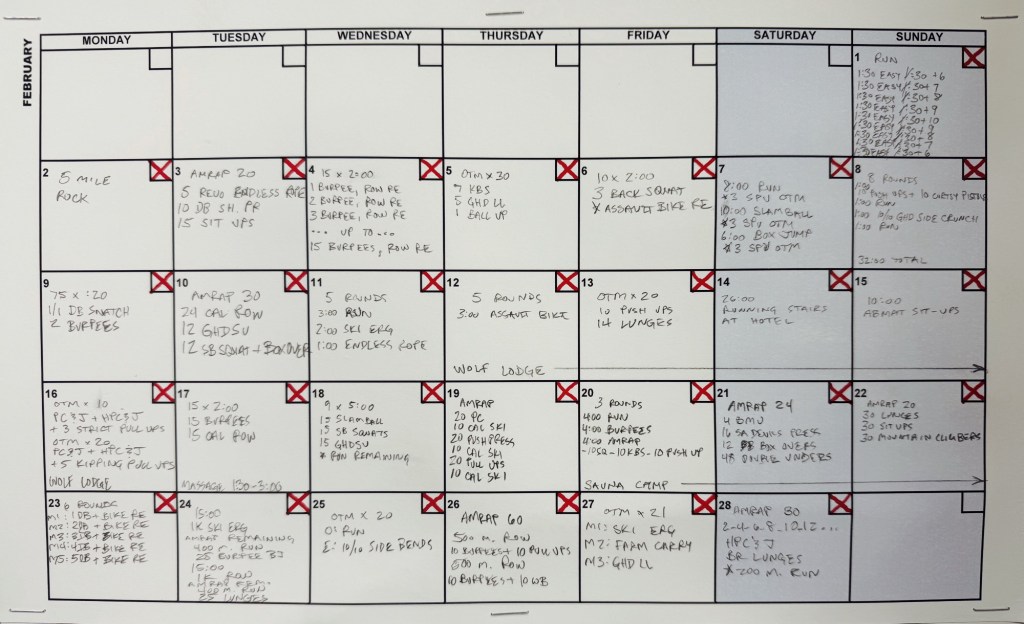 FEBRUARY
MONDAY
TUESDAY
WEDNESDAY
THURSDAY
FRIDAY
SATURDAY
SUNDAY
1 RUN
1:30 EASY/:30+6
1:30 EASY/:30+7
1:30 EASY/:30+8
1:30 EASY/:30+9
1:30 EASY/:30+10
1:30 EASY/:30+9
1:30 EASY/:30+8
1:30 EASY/:30+7
1:30 EASY/:30+6
2
5 MILE
ROCK
3 AMRAP 20
5 REVO ENDLESS ROPE
10 DB SH. PR
15 SIT UPS
4 15 x 2:00
1 BURPEE, ROW RE
2 BURPEE, ROW RE
3 BURPEE, ROW RE
... UP TO ...
15 BURPEES, ROW RE
5 OTM x 30
7 KBS
5 GHD LL
1 BALL UP
6 10 x 2:00
3 BACK SQUAT
* ASSAULT BIKE RE
7
8:00 RUN
*3 SPU OTM
10:00 SLAMBALL
*3 SPU OTM
6:00 BOX JUMP
*3 SPU OTM
8
8 ROUNDS
1:00
PUSH UPS + 10
1:00 RUN
1:00 10/10 GHD SIDE CRUNCH
1:00 RUN
32:00 TOTAL
9
75 x :20
1/1 DB SNATCH
2 BURPEES
10
AMRAP 30
24 CAL ROW
12 GHDSU
12 SB SQUAT + BOX OVER
11
5 ROUNDS
3:00 RUN
2:00 SKI ERG
1:00 ENDLESS ROPE
12
5 ROUNDS
3:00 ASSAULT BIKE
WOLF LODGE
13
OTM x 20
10 PUSH UPS
14 LUNGES
14
26:00
RUNNING STAIRS
AT HOTEL
15
10:00
ABMAT SIT-UPS
16
OTM x 10
PC&J + HPC&J
+ 3 STRICT PULL UPS
OTM x 20
PC&J + HPC&J
+5 KIPPING PULL UPS
WOLF LODGE
17
15 x 2:00
15 BURPEES
15 CAL ROW
MASSAGE 1:30-3:00
18
9 x 5:00
15 SLAMBALL
15 SB SQUATS
15 GHDSU
* ROW REMAINING
19
AMRAP
20 PC
10 CAL SKI
20 PUSH PRESS
10 CAL SKI
20 PULL UPS
10 CAL SKI
20
3 ROUNDS
4:00 RUN
4:00 BURPEES
4:00 AMRAP
-10SQ-10KBS-10 PUSH UP
SAUNA CAMP
21
AMRAP 24
4 BMU
PRESS
12 BOX OVERS
48 DOUBLE UNDERS
22
AMRAP 20
30 LUNGES
30 SIT UPS
30 MOUNTAIN CLIMBERS
23 6 ROUNDS
M1: 1DB + BIKE RE
M2: 2DB + BIKE RE
M3: 3DB + BIKE RE
M4: 4DB + BIKE RE
M5: 5DB + BIKE RE
24
15:00
1K SKI ERG
AMRAP REMAINING
400 M. RUN
25 BURPEE BJ
15:00
1K ROW
AMRAP REM.
400 M. RUN
25 LUNGES
25
OTM x 20
O: RUN
E: 10/10 SIDE BENDS
26
AMRAP 60
500 M. ROW
10 BURPEES + 10 PULL UPS
500 M. ROW
10 BURPEES + 10 WB
27
OTM x 21
M1: SKI ERG
M2: FARM CARRY
M3: GHD LL
28
AMRAP 30
2-4-6-8-10-12...
HPC&J
BR LUNGES
*200 M. RUN